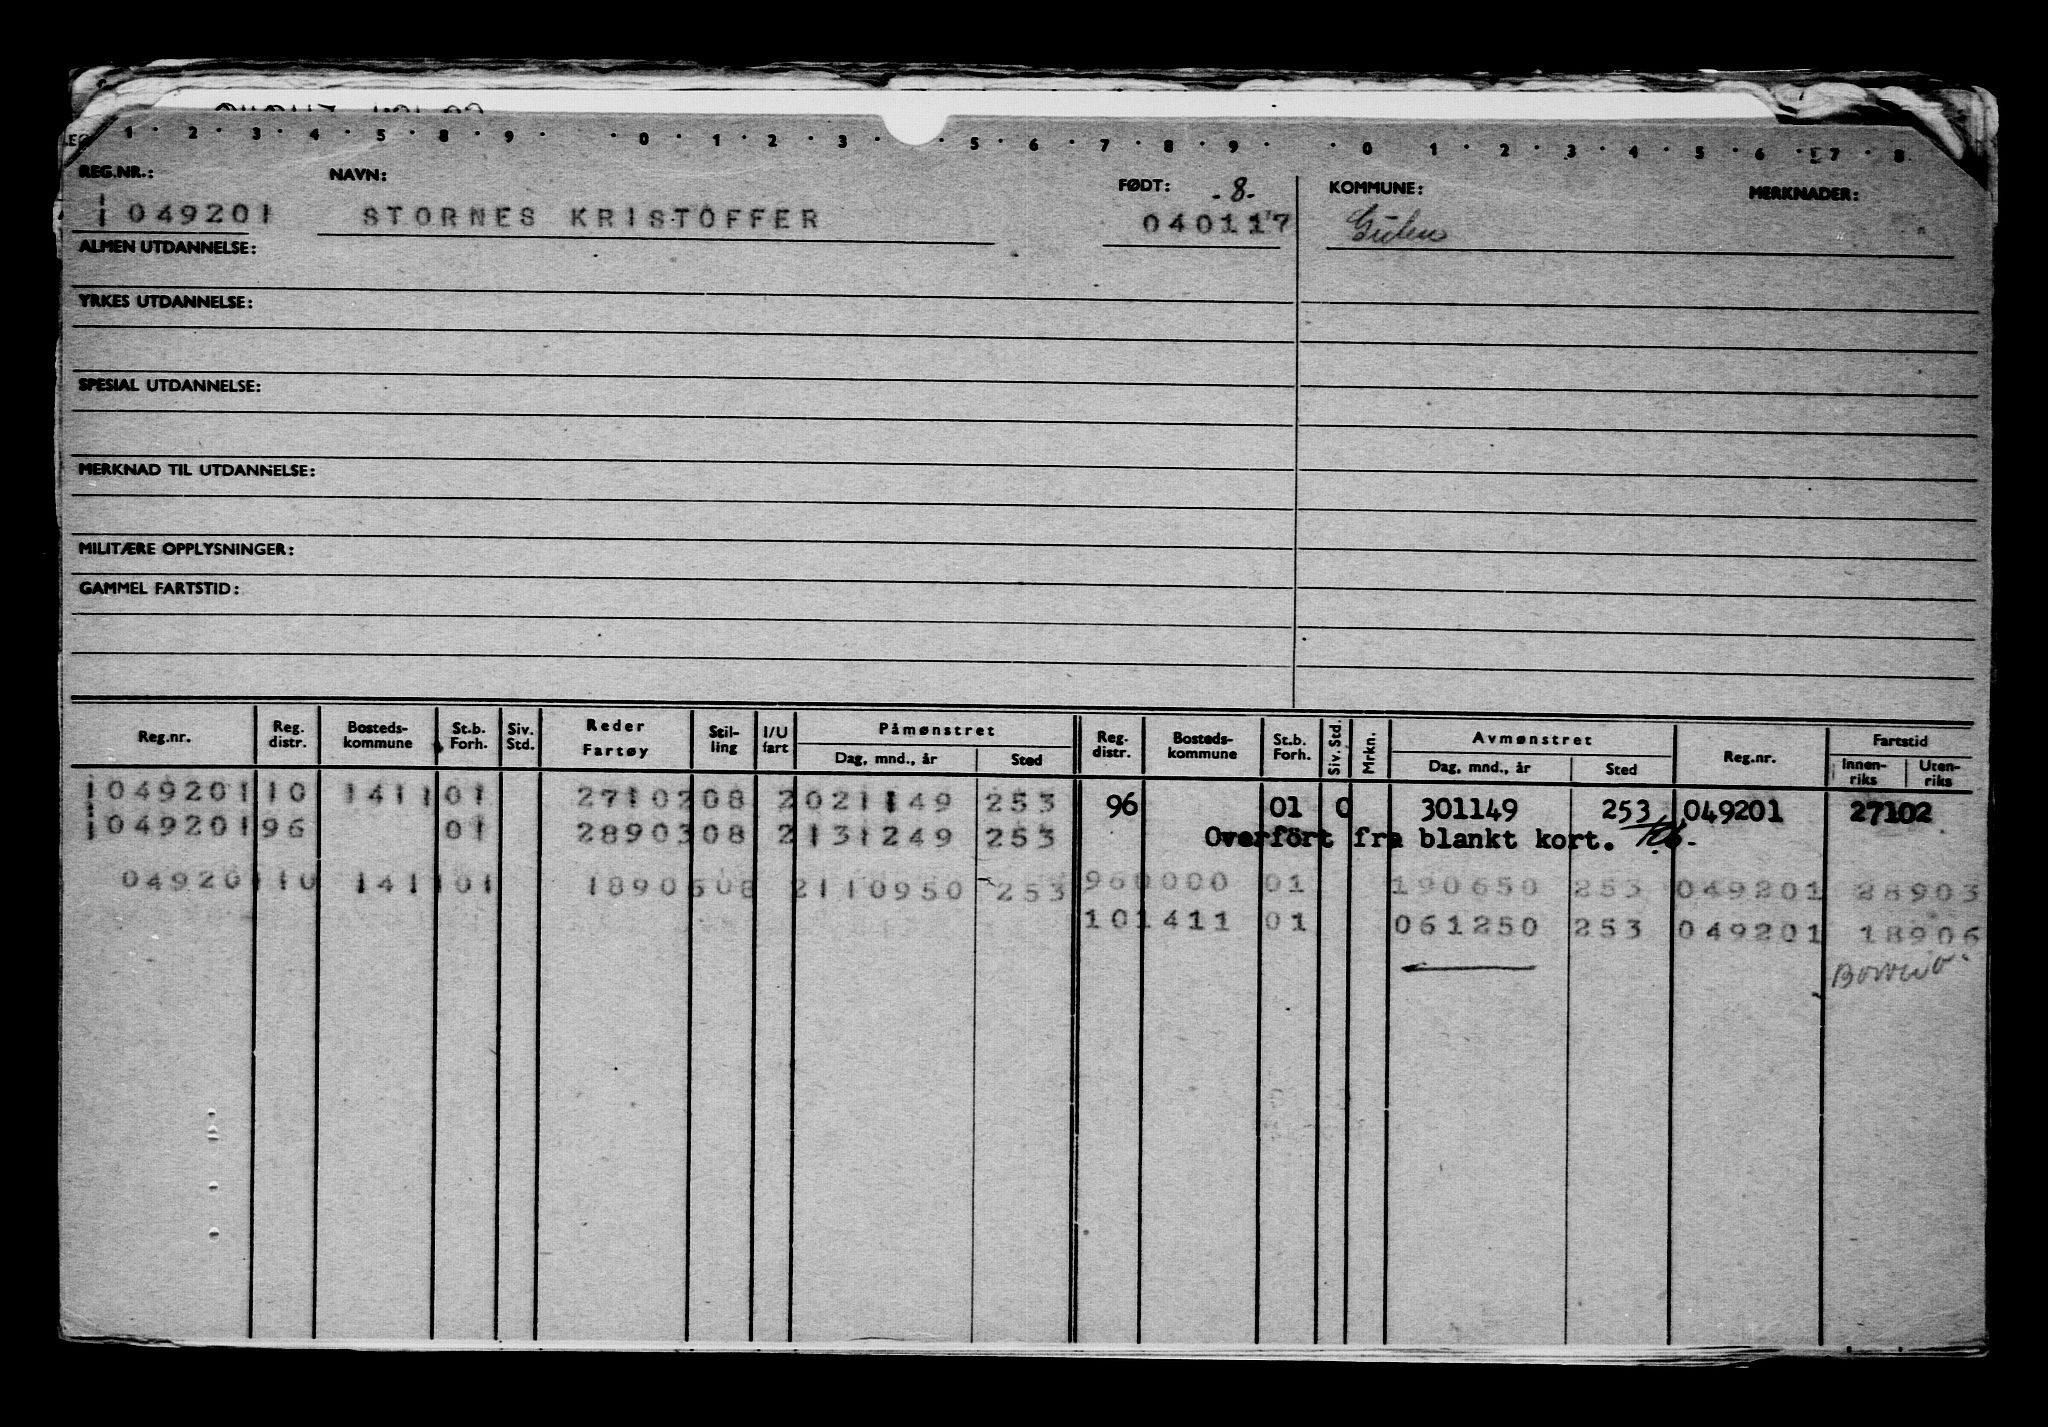 1 · 2 · 3 · 4 · 5 · 8 · 9 · · 0 · 1 · 2 · 3 · 5 · 6 · 7 · 8 · 9 · · 0 · 1 · 2 · 3 · 4 · 5 · 6 · 7 · 8
REG.NR.: NAVN: FØDT: KOMMUNE: MERKNADER:
-8-
049201 STORNES KRISTOFFER 040117 Gulen
ALMEN UTDANNELSE:
YRKES UTDANNELSE:
SPESIAL UTDANNELSE:
MERKNAD TIL UTDANNELSE:
MILITÆRE OPPLYSNINGER:
GAMMEL FARTSTID:
Reg.nr. Reg. distr. Bosteds-kommune St.b. Forh. Siv. Std. Reder Fartøy Stil-ling I/U fart Påmønstret Dag, mnd., år Sted Reg. distr. Bosteds-kommune St.b. Forh. Siv. Std. Mrkn. Avmønstret Dag, mnd., år Sted Reg.nr. Fartstid Innen-riks Uten-riks
1049201 10 1411 01 27102 08 2 021149 253 96 01 0 301149 253 049201 27102
1049201 96 01 28903 08 2 131249 253 Overfört fra blankt kort.
049201 10 1411 01 18906 08 2 110950 253 96 0000 01 190650 253 049201 28903
10 1411 01 061250 253 049201 18906